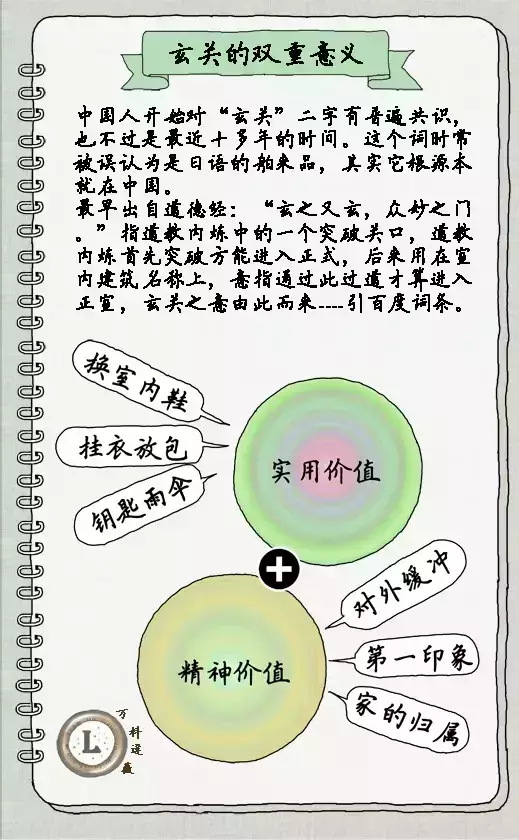 玄关的双重意义
中国人开始对“玄关”二字有普遍共识，
也不过是最近十多年的时间。这个词时常
被误认为是日语的舶来品，其实它根源本
就在中国。
最早出自道德经：“玄之又玄，众妙之门
。”指道教内炼中的一个突破关口，道教
内炼首先突破方能进入正式，后来用在室
内建筑名称上，意指通过此过道才算进入
正室，玄关之意由此而来----引百度词条。
换室内鞋
挂衣放包
钥匙雨伞
实用价值
+
对外缓冲
第一印象
家的归属
精神价值
L
万
科